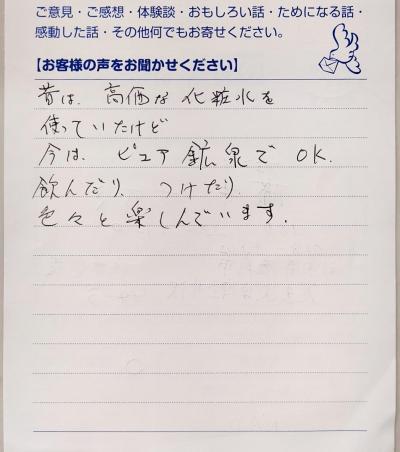 ご意見・ご感想・体験談・おもしろい話・ためになる話・
感動した話・その他何でもお寄せください。
【お客様の声をお聞かせください】
昔は、高価な化粧水を
使っていたけど
今は、ピュア鉱泉でOK.
飲んだり、つけたり
色々と楽しんでいます.